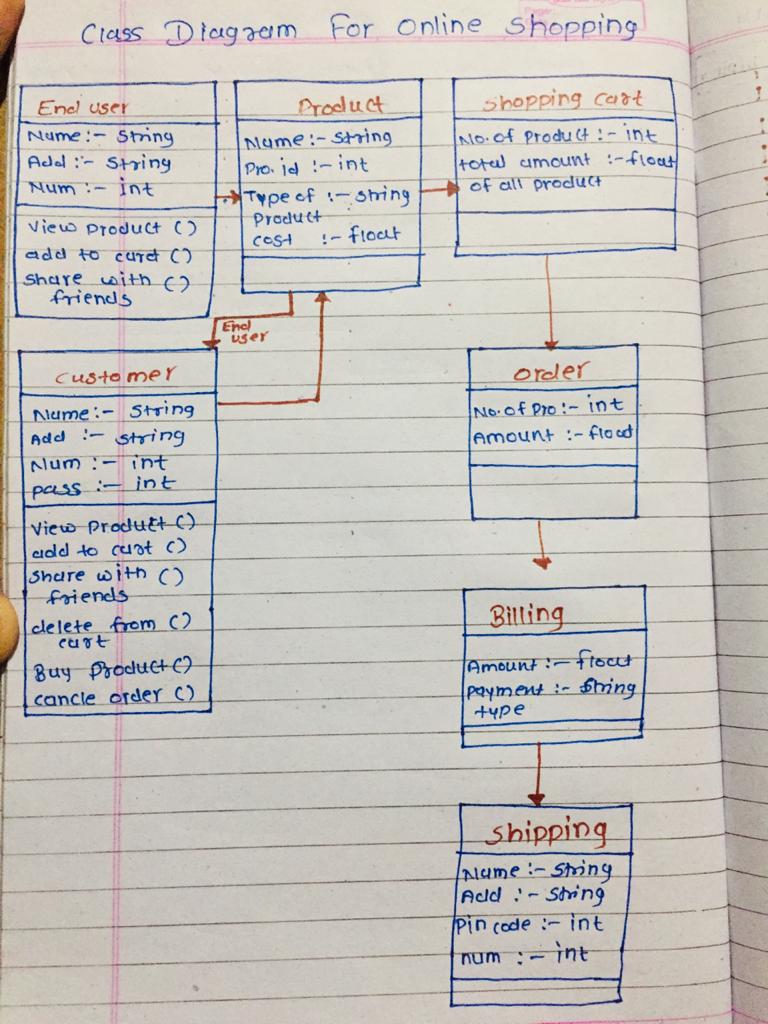 Class Diagram For Online Shopping
End user
Name :- String
Add :- String
Num :- int
View Product ()
add to card ()
Share with ()
friends
Product
Name :- String
Pro. id :- int
Type of :- string
Product
cost :- float
Shopping cart
No. of Product :- int
total amount :- float
of all product
End
user
Customer
Name :- String
Add :- String
Num :- int
pass :- int
View Product ()
add to cart ()
Share with ()
friends
delete from ()
cart
Buy Product ()
cancle order ()
Order
No. of Pro :- int
Amount :- float
Billing
Amount :- float
payment :- String
type
Shipping
Name :- String
Add :- String
Pin code :- int
num :- int